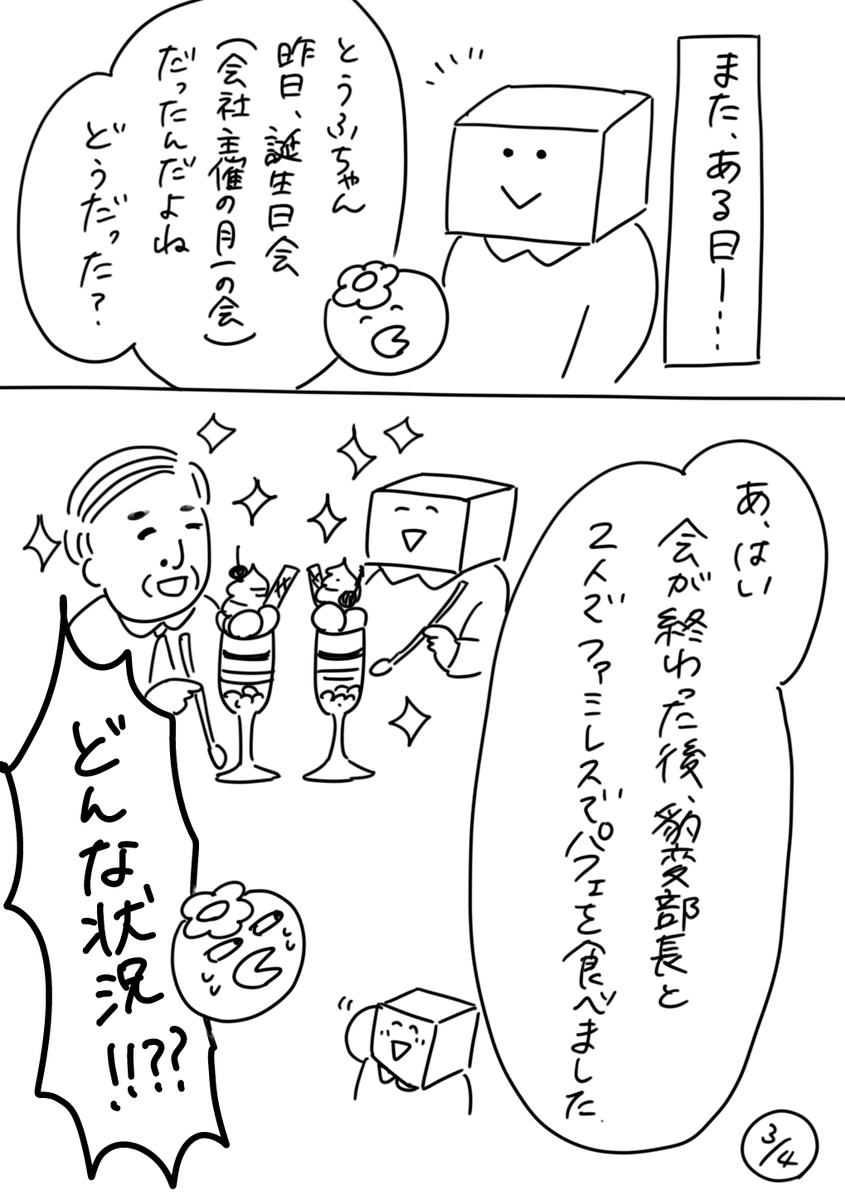 また、ある日ー…
とうふちゃん
昨日、誕生日会
(会社主催の月一の会)
だったんだよね
どうだった?
あ、はい
会が終わった後、豹変部長と
2人でファミレスでパフェを食べました.
どんな状況!!??
3/4